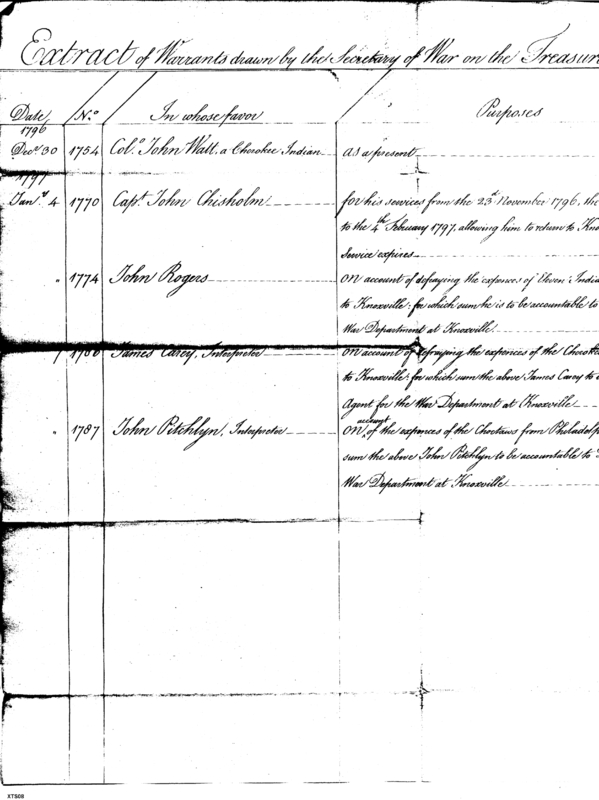 Extract of Warrants drawn by the Secretary of War on the Treasur
Date Nº In whose favor Purposes
1796
Decr 30 1754 Colº John Watt, a Cherokee Indian as a present
1797
Janry 4 1770 Capt. John Chisholm for his services from the 23d November 1796, the
to the 4th February 1797, allowing him to return to Kno
service expires
" 1774 John Rogers on account of defraying the expences of Eleven India
to Knoxville: for which sum he is to be accountable to
War Department at Knoxville
James Carey, Interpreter on account of defraying the expences of the Cherokee
to Knoxville: for which sum the above James Carey to
Agent for the War Department at Knoxville
" 1787 John Pitchlyn, Interpreter on account of the expences of the Choctaws from Philadelp
sum the above John Pitchlyn to be accountable to
War Department at Knoxville
XTS08